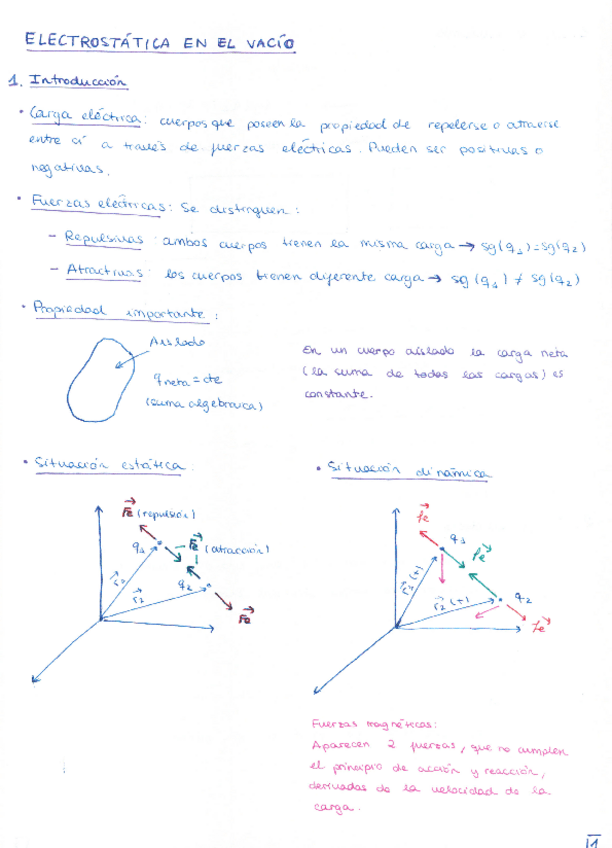 ELECTROSTÁTICA EN EL VACÍO
1. Introducción
• Carga eléctrica: cuerpos que poseen la propiedad de repelerse o atraerse
entre sí a través de fuerzas eléctricas. Pueden ser positivas o
negativas.
• Fuerzas eléctricas: Se distinguen:
– Repulsivas: ambos cuerpos tienen la misma carga → sg(q1)=sg(q2)
– Atractivas: los cuerpos tienen diferente carga → sg(q1) ≠ sg(q2)
• Propiedad importante:
Aislado
q neta = cte
(suma algebraica)
En un cuerpo aislado la carga neta
(la suma de todas las cargas) es
constante.
• Situación estática
Fe (repulsión)
q1
Fe (atracción)
q2
Fe
• Situación dinámica
fe
q1
fe
r1(t)
r2(t)
q2
fe
Fuerzas magnéticas:
Aparecen 2 fuerzas, que no cumplen
el principio de acción y reacción,
derivadas de la velocidad de la
carga.
1